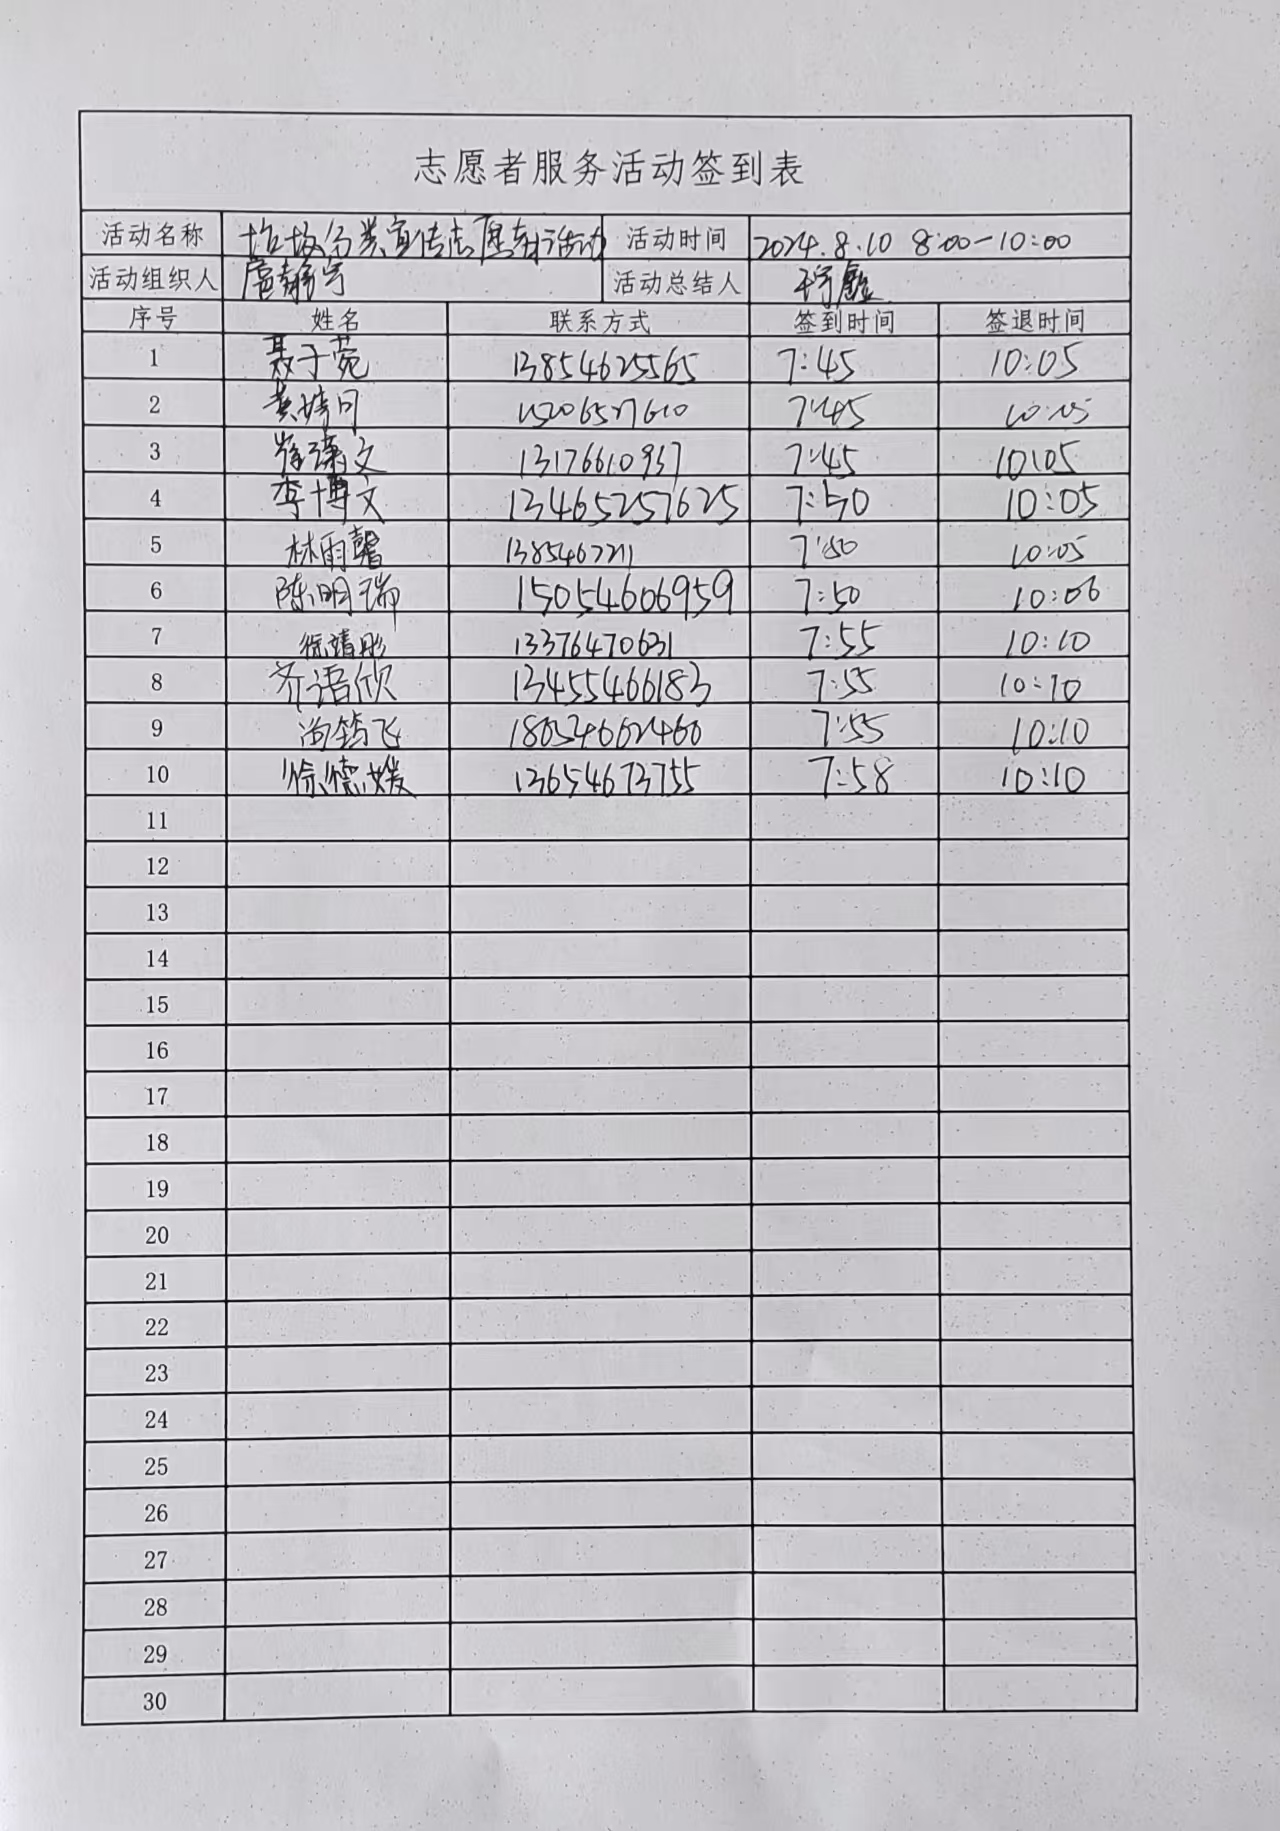 志愿者服务活动签到表
活动名称 垃圾分类宣传志愿服务活动 活动时间 2024.8.10 8:00-10:00
活动组织人 静宇 活动总结人
序号 姓名 联系方式 签到时间 签退时间
1 聂子菀 13854625565 7:45 10:05
2 黄 月 15206517610 7:45 10:05
3 文 13176610937 7:45 10:05
4 李博文 13465257625 7:50 10:05
5 林雨馨 1385467211 7:50 10:05
6 陈明瑞 15054606959 7:50 10:06
7 徐靖彤 13376470631 7:55 10:10
8 齐语欣 13455466183 7:55 10:10
9 飞 7:55 10:10
10 徐德媛 13654673755 7:58 10:10
11
12
13
14
15
16
17
18
19
20
21
22
23
24
25
26
27
28
29
30